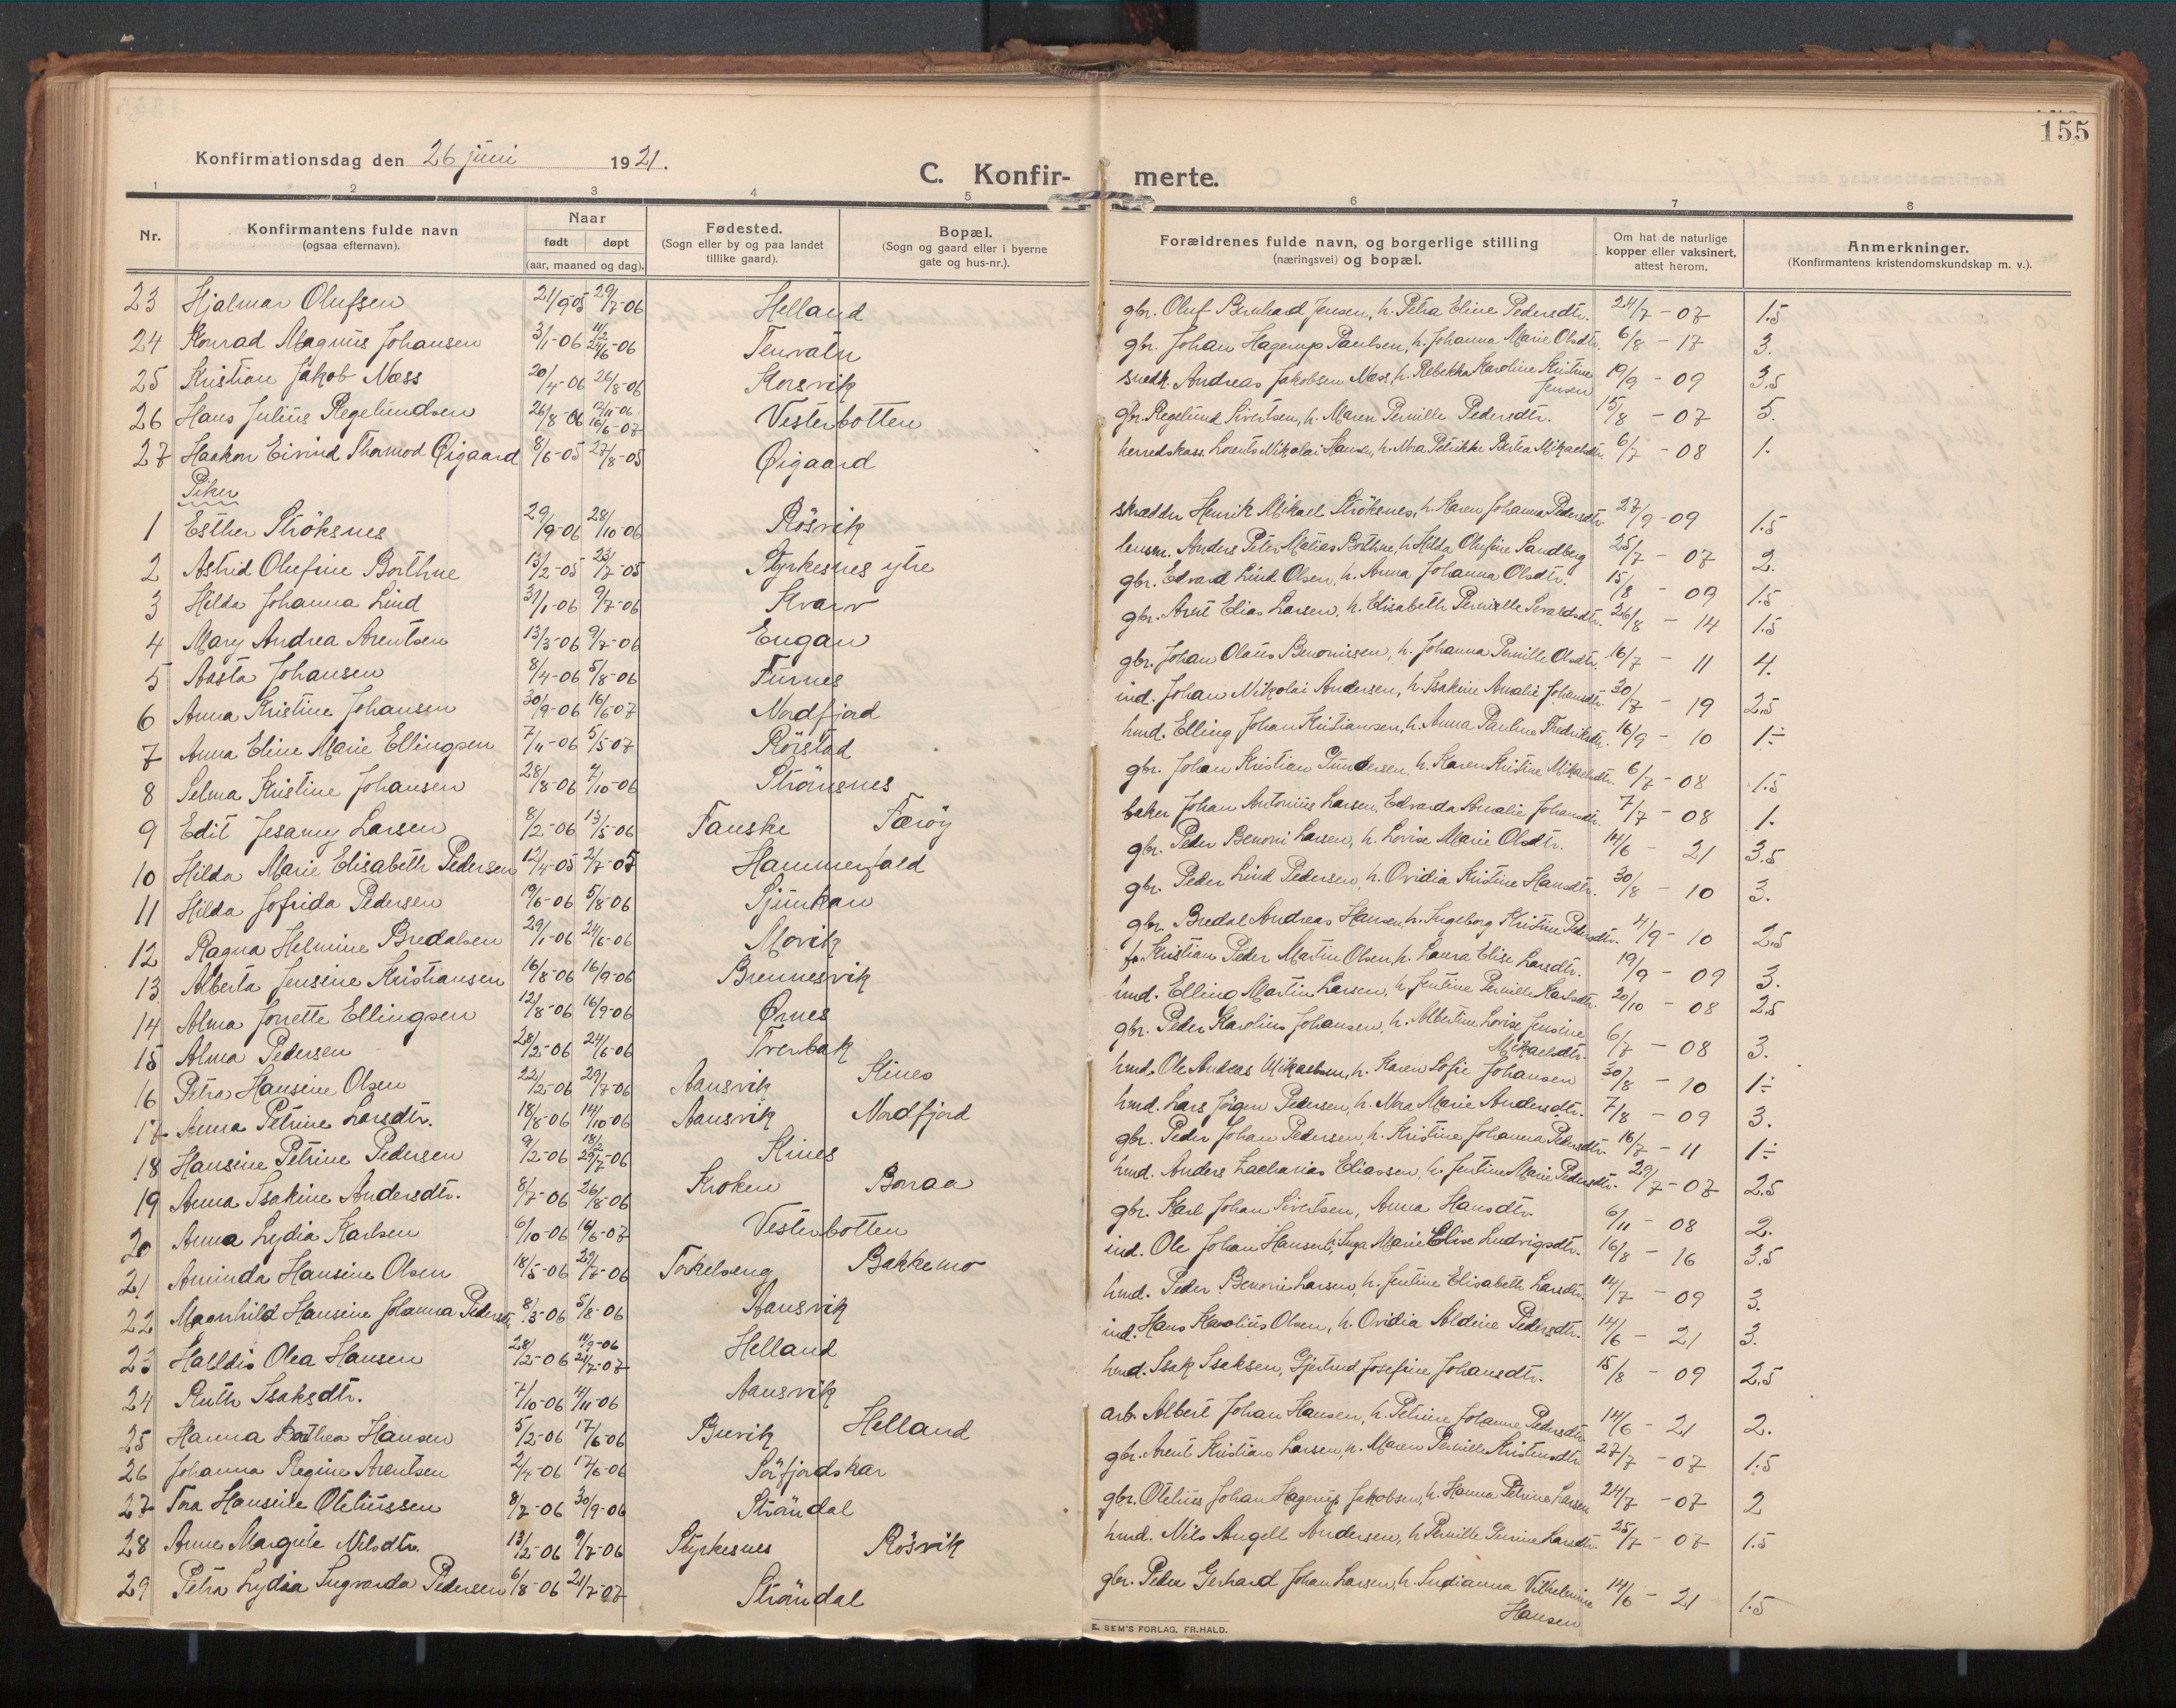 155
Konfirmationsdag den 26 juni 1921.
C. Konfir- merte.
1 2 3 4 5 6 7 8
Nr. Konfirmantens fulde navn (ogsaa efternavn). Naar født døpt (aar, maaned og dag). Fødested. (Sogn eller by og paa landet tillike gaard). Bopæl. (Sogn og gaard eller i byerne gate og hus-nr.). Forældrenes fulde navn, og borgerlige stilling (næringsvei) og bopæl. Om hat de naturlige kopper eller vaksinert, attest herom. Anmerkninger. (Konfirmantens kristendomskundskap m. v.).
23 Hjalmar Olufsen 21/9 05 29/7-06 Helland gbr. Oluf Bernhard Jensen, h. Petra Eline Pedersdtr. 24/7-07 1.5
24 Konrad Magnus Johansen 3/1-06 11/2 24/6-06 Tennvatn gbr. Johan Hagerup Paulsen, h. Johanna Marie Olsdtr. 6/8-17 3.
25 Kristian Jakob Næss 20/4-06 26/8-06 Korsvik snedk. Andreas Jakobsen Næss, h. Rebekka Karoline Kristine Jensen 19/9-09 3.5
26 Hans Julius Regelundsen 26/8-06 12/11-06 16/6-07 Vesterbotten gbr. Regelund Sivertsen, h. Maren Pernille Pedersdtr. 15/8-07 5.
27 Haakon Eivind Thormod Øigaard 8/6-05 27/8-05 Øigaard herredskass. Lorents Nikolai Hansen, h. Nora Petrikke Bertea Mikaelsdtr. 6/7-08 1.
Piker
1 Esther Ströksnes 29/9-06 28/10-06 Rösvik skrædder Henrik Mikael Ströksnes, h. Karen Johanna Pedersdtr. 27/9-09 1.5
2 Astrid Olufine Borthne 13/2-05 23/7-05 Styrkesnes ytre lensm. Anders Peter Matias Borthne, h. Hilda Olufine Sandberg 25/7-07 2.
3 Hilda Johanna Lind 31/1-06 9/7-06 Kvarv gbr. Edvard Lind Olsen, h. Anna Johanna Olsdtr. 15/8-09 1.5
4 Mary Andrea Arentsen 13/3-06 9/7-06 Engan gbr. Arnt Elias Larsen, h. Elisabeth Pernille Sivaldsdtr. 26/8-14 1.5
5 Aasta Johansen 8/4-06 5/8-06 Furnes gbr. Johan Olaus Benonissen, h. Johanna Pernille Olsdtr. 16/7-11 4.
6 Anna Kristine Johansen 30/9-06 16/6 07 Nordfjord ind. Johan Nikolai Andersen, h. Isakine Amalie Johansdtr. 30/7-19 2.5
7 Anna Eline Marie Ellingsen 7/11-06 5/5 07 Rörstad hmd. Elling Johan Kristiansen, h. Anna Pauline Fredriksdtr. 16/9-10 1÷
8 Selma Kristine Johansen 28/8-06 7/10-06 Strömsnes gbr. Johan Kristian Gundersen, h. Karen Kristine Mikaelsdtr. 6/7-08 1.5
9 Edit Jesamy Larsen 8/2-06 13/5-06 Fauske Færöy baker Johan Antonius Larsen, Edvarda Amalie Johansdtr. 7/7-08 1.
10 Hilda Marie Elisabeth Pedersen 12/4-05 2/7-05 Hammerfald gbr. Peder Benoni Larsen, h. Lovise Marie Olsdtr. 14/6-21 3.5
11 Hilda Jofrida Pedersen 19/6-06 5/8-06 Sjunkan gbr. Peder Lind Pedersen, h. Ovidia Kristine Hansdtr. 30/8-10 3.
12 Ragna Helmine Bredalsen 29/1-06 24/6-06 Movik gbr. Bredal Andreas Hansen, h. Ingeborg Kristine Pedersdtr. 4/9-10 2.5
13 Alberta Jensine Kristiansen 16/8-06 16/9-06 Brennesvik f. Kristian Peder Martin Olsen, h. Laura Elise Larsdtr. 19/9-09 3.
14 Alma Jorette Ellingsen 12/8-06 16/9-06 Ørnes hmd. Elling Martin Larsen, h. Jentine Pernille Karlsdtr. 20/10 08 2.5
15 Alma Pedersen 28/2-06 24/6-06 Tverbak gbr. Peder Karolius Johansen, h. Albertine Lovise Jensine Mikaelsdtr. 6/7-08 3.
16 Petra Hansine Olsen 22/2-06 29/7-06 Aansvik Kines hmd. Ole Andreas Mikaelsen, h. Karen Sofie Johansen 30/8-10 1÷
17 Anna Petrine Larsdtr. 18/8-06 14/10-06 Aansvik Nordfjord hmd. Lars Jörgen Pedersen, h. Nora Marie Andersdtr. 7/8-09 3.
18 Hansine Petrine Pedersen 9/2-06 18/2 29/7-06 Kines gbr. Peder Johan Pedersen, h. Kristine Johanna Pedersdtr. 16/7-11 1÷
19 Anna Isakine Andersdtr. 8/7-06 26/8-06 Kroken Bonaa hmd. Anders Zacharias Eliassen, h. Jentine Marie Pedersdtr. 29/7-07 2.5
20 Anna Lydia Karlsen 6/10-06 16/6-07 Vesterbotten gbr. Karl Johan Sivertsen, Anna Hansdtr. 6/11-08 2.
21 Aminda Hansine Olsen 18/5-06 22/7-06 Torkelseng Bakkemo ind. Ole Johan Hansen, h. Inga Marie Elise Ludvigsdtr. 16/8-16 3.5
22 Magnhild Hansine Johanna Pedersd. 8/3-06 5/8-06 Aansvik hmd. Peder Benoni Larsen, h. Jentine Elisabeth Larsdtr. 14/7-09 3.
23 Halldis Olea Hansen 28/2-06 11/9-06 21/7-07 Helland ind. Hans Karolius Olsen, h. Ovidia Aldine Pedersdtr. 14/6-21 3.
24 Ruth Isaksdtr. 7/10-06 4/11-06 Aansvik hmd. Isak Isaksen, Gjertrud Josefine Johansdtr. 15/8-09 2.5
25 Hanna Bathea Hansen 5/2-06 17/6-06 Buvik Helland arb. Albert Johan Hansen, h. Petrine Johanne Pedersdtr. 14/6-21 2.
26 Johanna Regine Arentsen 2/4-06 17/6-06 Sörfjordskar gbr. Arent Kristian Larsen, h. Maren Pernille Kristensdtr. 27/7-07 1.5
27 Tora Hansine Oteliussen 8/7-06 30/9-06 Ströndal gbr. Otelius Johan Hagerup Jakobsen, h. Hanna Petrine Larsen 24/7-07 2
28 Anne Margrete Nilsdtr. 13/2-06 9/7-06 Styrkesnes Rösvik hmd. Nils Angell Andersen, h. Pernille Gurine Larsdtr. 25/7-07 1.5
29 Petra Lydia Ingvarda Pedersen 6/8-06 21/7-07 Ströndal gbr. Peder Gerhard Johan Larsen, h. Indianna Vilhelmine Hansen 14/6-21 1.5
E. SEM'S FORLAG, FR.HALD.